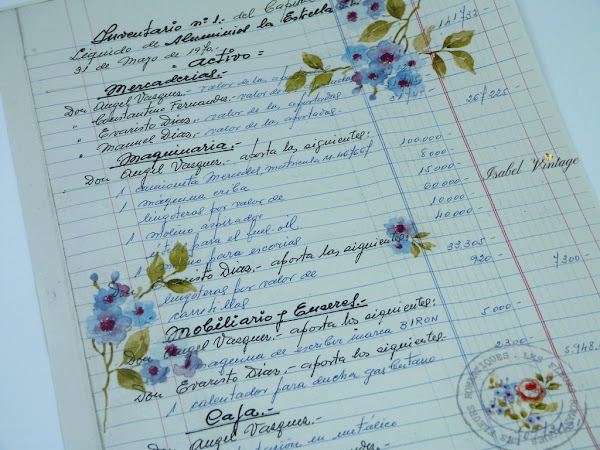 Inventario nº 1. del Capital
Líquido de Aluminios la Estrella S.L.
31 de Mayo de 1970.
Activo =
141/32
Mercaderías.-
Don Angel Vasquez.- valor de las aportadas
" Constantino Fernandez.- valor de
" Evaristo Dias.- valor de las aportadas
" Manuel Dias.- valor de las aportadas.- 26/225.-
Maquinaria.-
Don Angel Vasquez.- aporta las siguientes:
1 camioneta Mercedes, matricula 100.000.-
1 máquina criba 8000.-
lingoteras por valor de 15.000
1 molino aspirador 60.000.-
para el fuel-oil 10.000
para escorias 40.000.-
Evaristo Dias.- aporta las siguientes:
lingoteras por valor de 33.305
carretillas 920.- 7300.-
Mobiliario y Enseres.-
Don Angel Vasquez.- aporta los siguientes:
maquina de escribir marca BIRON 5000.-
Don Evaristo Dias.- aporta los siguientes.
1 calentador para ducha gas butano 2300.- 5.948.-
Caja.-
Don Angel Vasquez.-
en metálico
Isabel Vintage
ROMANTIQUES - LES